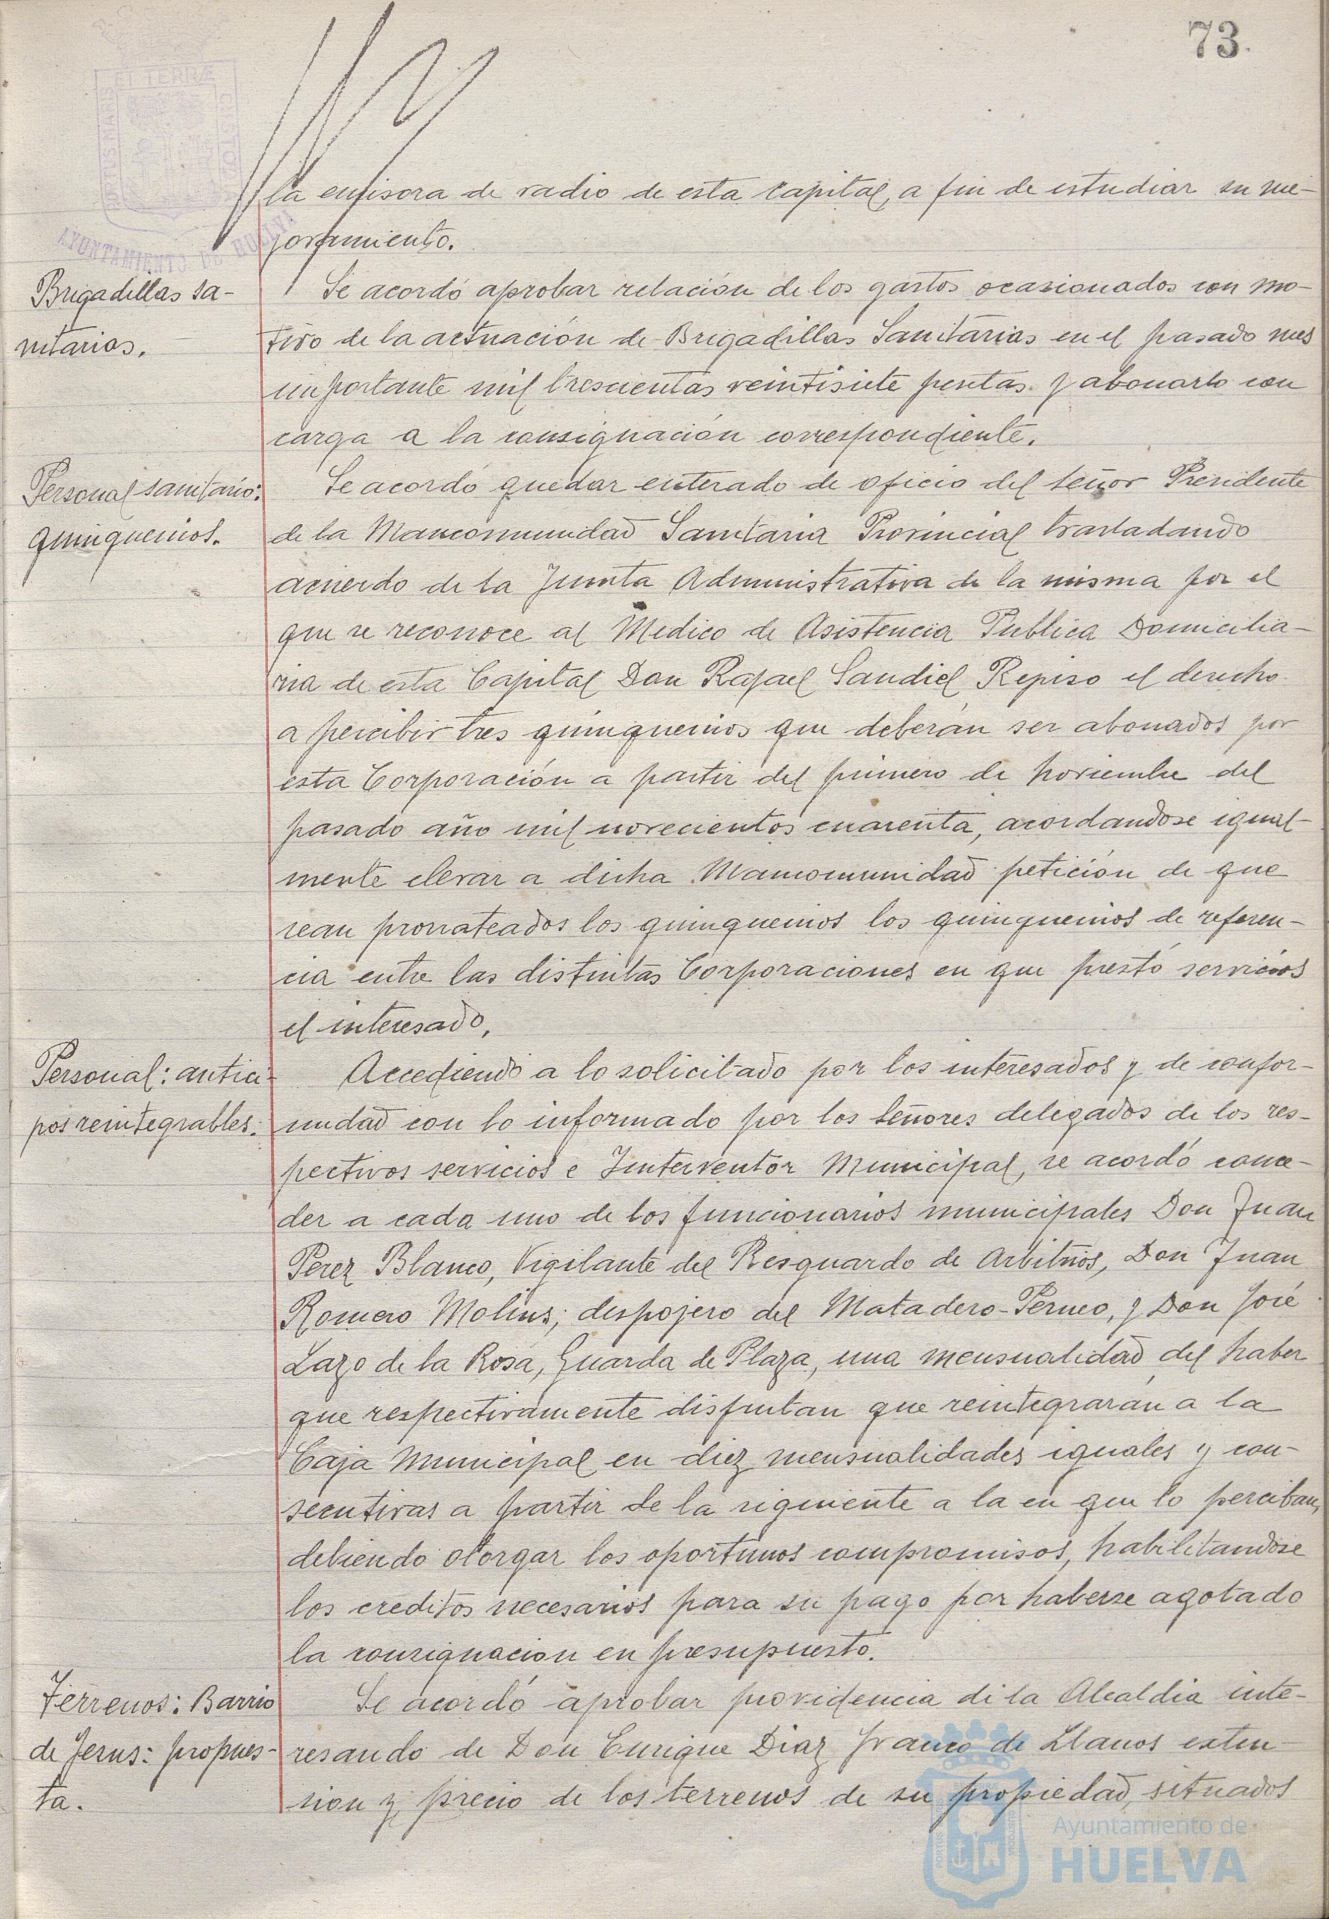 73.
PORTUS MARIS ET TERRÆ CUSTODIA
AYUNTAMIENTO DE HUELVA
la emisora de radio de esta capital, a fin de estudiar su me-
joramiento.
Brigadillas sa-
nitarias.
Se acordó aprobar relación de los gastos ocasionados con mo-
tivo de la actuación de Brigadillas Sanitarias en el pasado mes
importante mil trescientas veintisiete pesetas y abonarlo con
cargo a la consignación correspondiente.
Personal sanitario:
quinquenios.
Se acordó quedar enterado de oficio del señor Presidente
de la Mancomunidad Sanitaria Provincial trasladando
acuerdo de la Junta Administrativa de la misma por el
que se reconoce al Medico de Asistencia Publica Domicilia-
ria de esta Capital Don Rafael Sandiel Repiso el derecho
a percibir tres quinquenios que deberán ser abonados por
esta Corporación a partir del primero de noviembre del
pasado año mil novecientos cuarenta, acordandose igual-
mente elevar a dicha Mancomunidad petición de que
sean prorrateados los quinquenios los quinquenios de referen-
cia entre las distintas Corporaciones en que prestó servicios
el interesado.
Personal: antici-
pos reintegrables.
Accediendo a lo solicitado por los interesados y de confor-
midad con lo informado por los señores delegados de los res-
pectivos servicios e Interventor Municipal, se acordó conce-
der a cada uno de los funcionarios municipales Don Juan
Perez Blanco, Vigilante del Resguardo de Arbitrios, Don Juan
Romero Molins; despojero del Matadero-Perneo, y Don José
Lazo de la Rosa, Guarda de Plaza, una mensualidad del haber
que respectivamente disfrutan que reintegrarán a la
Caja Municipal en diez mensualidades iguales y con-
secutivas a partir de la siguiente a la en que lo perciban,
debiendo otorgar los oportunos compromisos, habilitandose
los creditos necesarios para su pago por haberse agotado
la consignacion en presupuesto.
Terrenos: Barrio
de Jesus: propues-
ta.
Se acordó aprobar providencia di la Alcaldia inte-
resando de Don Enrique Diaz Franco de Llanos exten-
sion y precio de los terrenos de su propiedad, situados
Ayuntamiento de
HUELVA